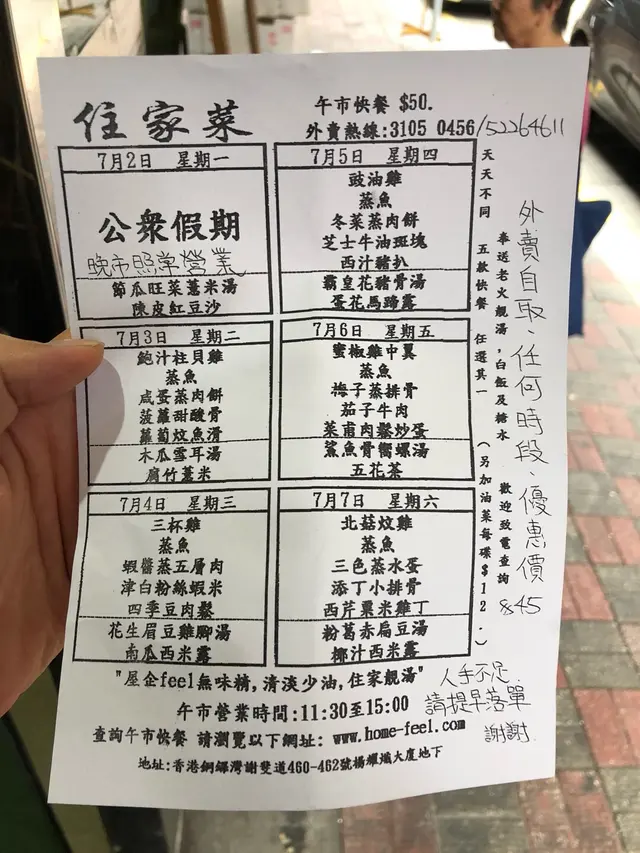 住家菜
午市快餐 $50.
外賣熱線:3105 0456/52264611
7月2日 星期一
公衆假期
晚市照常營業
節瓜旺菜薏米湯
陳皮紅豆沙
7月3日 星期二
鮑汁柱貝雞
蒸魚
咸蛋蒸肉餅
菠蘿甜酸骨
蘿蔔炆魚滑
木瓜雪耳湯
腐竹薏米
7月4日 星期三
三杯雞
蒸魚
蝦醬蒸五層肉
津白粉絲蝦米
四季豆肉鬆
花生眉豆雞腳湯
南瓜西米露
7月5日 星期四
豉油雞
蒸魚
冬菜蒸肉餅
芝士牛油斑塊
西汁豬扒
霸皇花豬骨湯
蛋花馬蹄露
7月6日 星期五
蜜椒雞中翼
蒸魚
梅子蒸排骨
茄子牛肉
菜甫肉鬆炒蛋
鯊魚骨嚮螺湯
五花茶
7月7日 星期六
北菇炆雞
蒸魚
三色蒸水蛋
添丁小排骨
西芹粟米雞丁
粉葛赤扁豆湯
椰汁西米露
天天不同 五款快餐 任選其一 (另加油菜每碟$12.)
奉送老火靚湯,白飯及糖水 歡迎致電查詢
外賣自取、任何時段、優惠價$45
"屋企feel無味精,清淡少油,住家靚湯"
午市營業時間:11:30至15:00
查詢午市快餐 請瀏覽以下網址: www.home-feel.com
地址:香港銅鑼灣謝斐道460-462號楊耀熾大廈地下
人手不足
請提早落單
謝謝